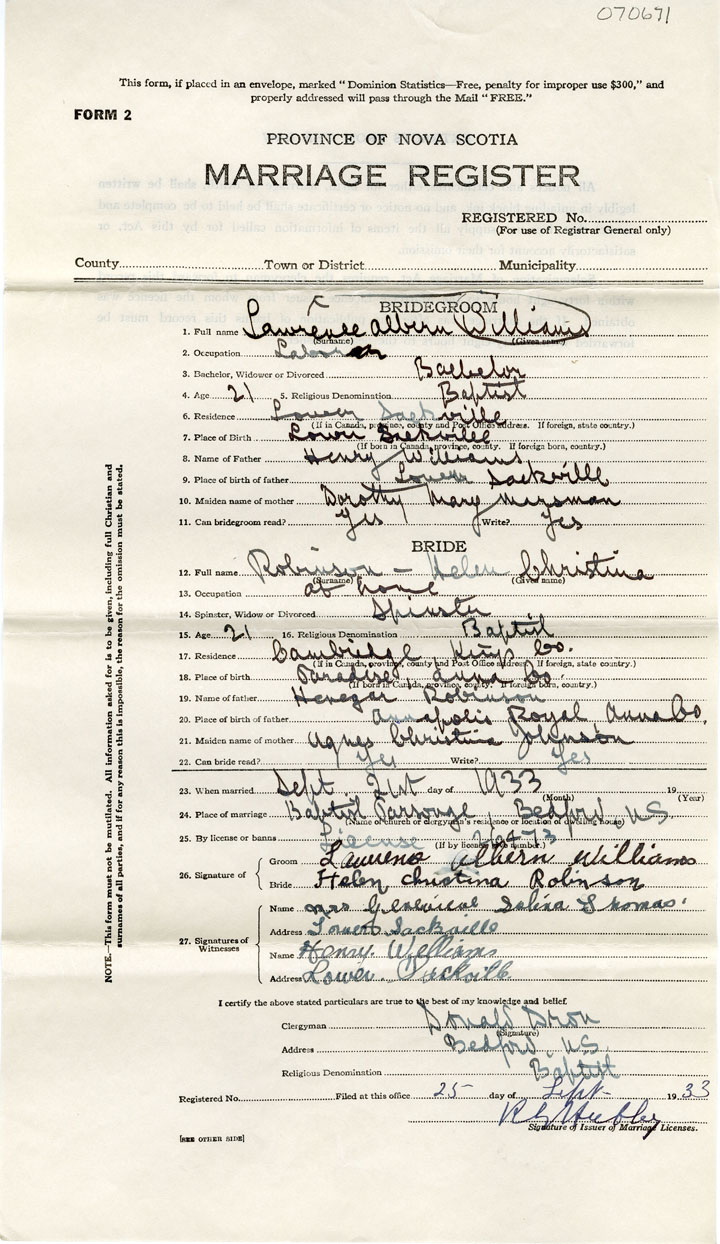 070671
This form, if placed in an envelope, marked "Dominion Statistics—Free, penalty for improper use $300," and
properly addressed will pass through the Mail "FREE."
FORM 2
PROVINCE OF NOVA SCOTIA
MARRIAGE REGISTER
REGISTERED No.
(For use of Registrar General only)
County Town or District Municipality
BRIDEGROOM
1. Full name Lawrence albern Williams
(Surname) (Given name)
2. Occupation Laborer
3. Bachelor, Widower or Divorced Bachelor
4. Age 21 5. Religious Denomination Baptist
6. Residence Lower Sackville
(If in Canada, province, county and Post Office address. If foreign, state country.)
7. Place of Birth Lower Sackville
(If born in Canada, province, county. If foreign born, country.)
8. Name of Father Henry Williams
9. Place of birth of father Lower Sackville
10. Maiden name of mother Dorothy Mary Marsman
11. Can bridegroom read? Yes Write? Yes
BRIDE
12. Full name Robinson - Helen Christina
(Surname) (Given name)
13. Occupation at home
14. Spinster, Widow or Divorced Spinster
15. Age 21 16. Religious Denomination Baptist
17. Residence Cambridge Kings Co.
(If in Canada, province, county and Post Office address. If foreign, state country.)
18. Place of birth Paradise, Anna Co
(If born in Canada, province, county. If foreign born, country.)
19. Name of father Henegar Robinson
20. Place of birth of father Annapolis Royal Anna Co.
21. Maiden name of mother Agnes Christina Johnson
22. Can bride read? Yes Write? Yes
23. When married Sept. 21st day of 1933 19
(Month) (Year)
24. Place of marriage Baptist Parsonage, Bedford, N.S.
(Name of church or clergyman's residence or location of dwelling house)
25. By license or banns License
(If by license give number.)
26. Signature of
Groom Lawrence Albern Williams
Bride Helen Christina Robinson
27. Signatures of Witnesses
Name Mrs Genevieve Selina Thomas
Address Lower Sackville
Name Henry Williams
Address Lower Sackville
I certify the above stated particulars are true to the best of my knowledge and belief.
Clergyman Donald Dron
(Signature)
Address Bedford, N.S.
Religious Denomination Baptist
Registered No. Filed at this office 25 day of Sept. 1933
Signature of Issuer of Marriage Licenses.
[SEE OTHER SIDE]
NOTE.—This form must not be mutilated. All information asked for is to be given, including full Christian and
surnames of all parties, and if for any reason this is impossible, the reason for the omission must be stated.